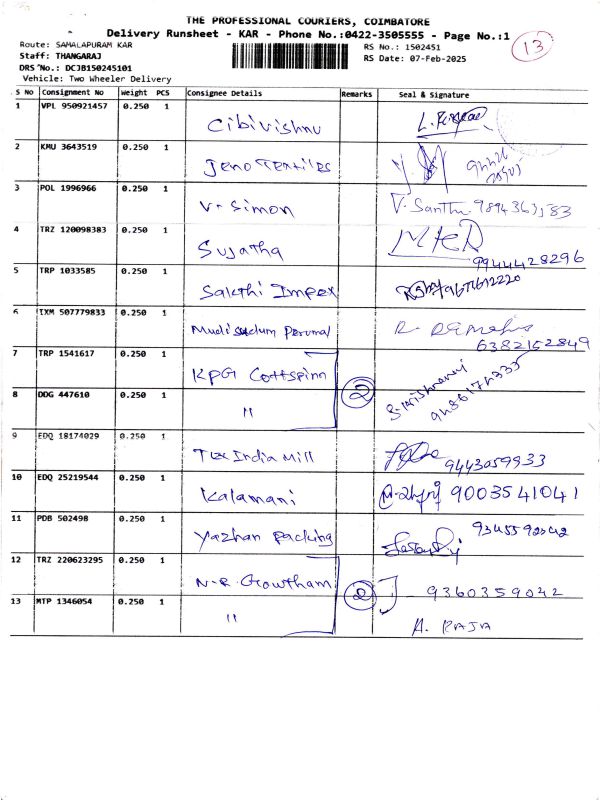 THE PROFESSIONAL COURIERS, COIMBATORE
Delivery Runsheet - KAR - Phone No.:0422-3505555 - Page No.:1
13
Route: SAMALAPURAM KAR
RS No.: 1502451
Staff: THANGARAJ
RS Date: 07-Feb-2025
DRS No.: DCJB150245101
Vehicle: Two Wheeler Delivery
S No Consignment No Weight PCS Consignee Details Remarks Seal & Signature
1 VPL 950921457 0.250 1 Cibivishnu
2 KMU 3643519 0.250 1 Jeno Textiles
3 POL 1996966 0.250 1 V. Simon V. Santhi
4 TRZ 120098383 0.250 1 Sujatha 9944428296
5 TRP 1033585 0.250 1 Sakthi Impex
6 TXM 507779833 0.250 1 Perumal 6382152849
7 TRP 1541617 0.250 1 KPG Cottspinn
2
8 DDG 447610 0.250 1 "
9 EDQ 18174029 0.250 1 Tex India Mill 9443059933
10 EDQ 25219544 0.250 1 Kalamani 9003541041
11 PDB 502498 0.250 1 Yazhan Packing 9345592042
12 TRZ 220623295 0.250 1 N.R. Gowtham 2 9360359042
13 MTP 1346054 0.250 1 " A. RAJA